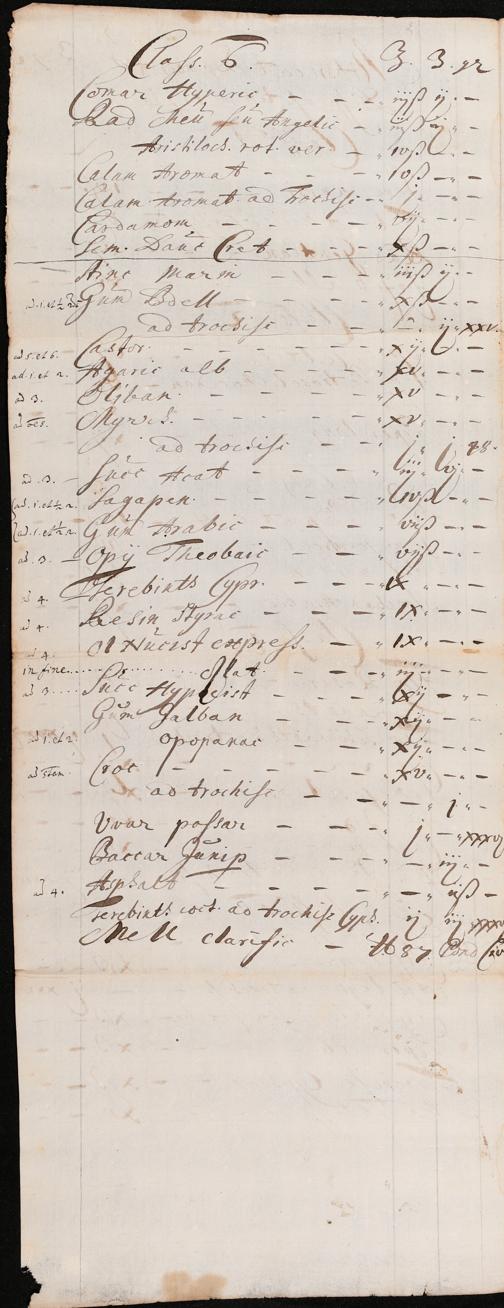 Class. 6. ℥. ʒ. gr
Comar Hyperic — — — iijß ij — —
Rad Meū sū Angelic — — iijß ij — —
Aristiloch. rot. ver — ivß — —
Calam Aromat — — — ivß — —
Calam Aromat ad Trochisc — j — —
Cardamom — — — — —
Sem. Dauc Cret — — — xß — —
Ainc marin — — — iiijß ij — —
Gum Bdell — — — xß — —
ad trochisc — — ij xxv.
ad 5. et 6. Castor — — — xij — —
ad. 1. et 2. Agaric alb — — — xv — —
ad 3. Oliban — — — xv — —
Myrrh. — — — xv — —
ad trochisc — j j 18.
ad. 3. — Succ Acat — — — —
Sagapen — — — ivß — —
Gum Arabic — — — vijß — —
ad. 3. — Opij Thebaic — — — vijß — —
ad 4. Terebinth Cypr. — — — ix — —
ad 4. Resin Styrac — — — ix — —
ad 4. Ol Nucist express. — ix — —
in fine .......... Olat iij — —
ad 3 .... Succ Hypocist — — — xij — —
Gum Galban — — — xij — —
ad 1. et 2. Opopanac — — xij — —
Croc — — — — xv — —
ad trochisc — — j — —
Uvar passar — — — j — xxxvj
Baccar Junip — — — iij —
ad 4. Asphalt — — — — ijß — —
Terebinth coct. ad trochisc Cyph. ij iij
Mell clarific — ℔ 87 Pond